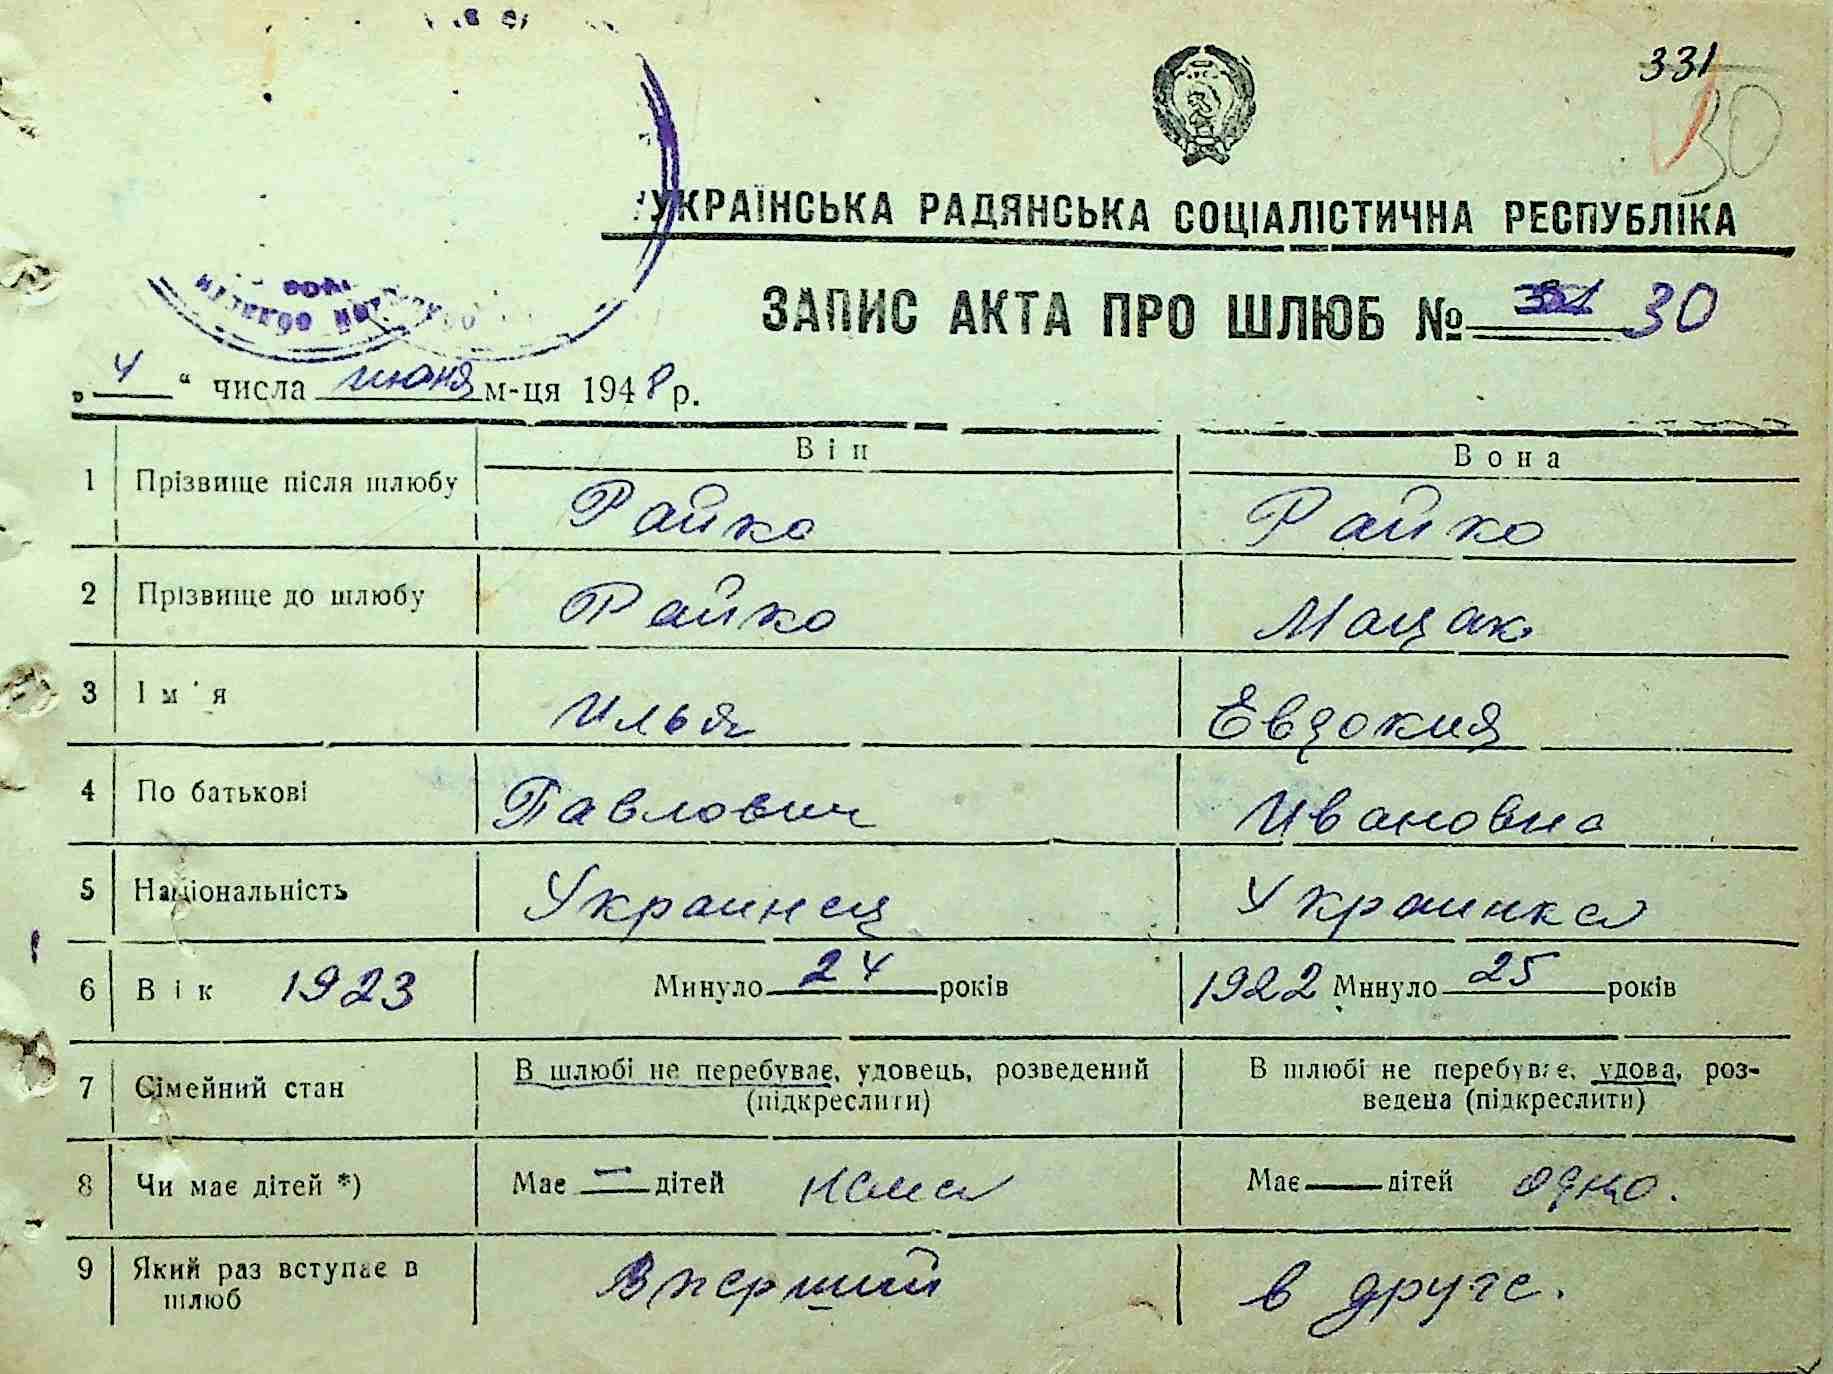 331
30
УКРАЇНСЬКА РАДЯНСЬКА СОЦІАЛІСТИЧНА РЕСПУБЛІКА
ЗАПИС АКТА ПРО ШЛЮБ № 30
„ 4 “ числа июня м-ця 1948 р.
Він Вона
1 Прізвище після шлюбу Райко Райко
2 Прізвище до шлюбу Райко Мацак
3 Ім'я Илья Евдокия
4 По батькові Павлович Ивановна
5 Національність Украинец Украинка
6 Вік 1923 Минуло 24 років 1922 Минуло 25 років
7 Сімейний стан В шлюбі не перебуває, удовець, розведений (підкреслити) В шлюбі не перебуває, удова, роз-
ведена (підкреслити)
8 Чи має дітей *) Має — дітей нема Має — дітей одно.
9 Який раз вступає в шлюб Вперший в друге.